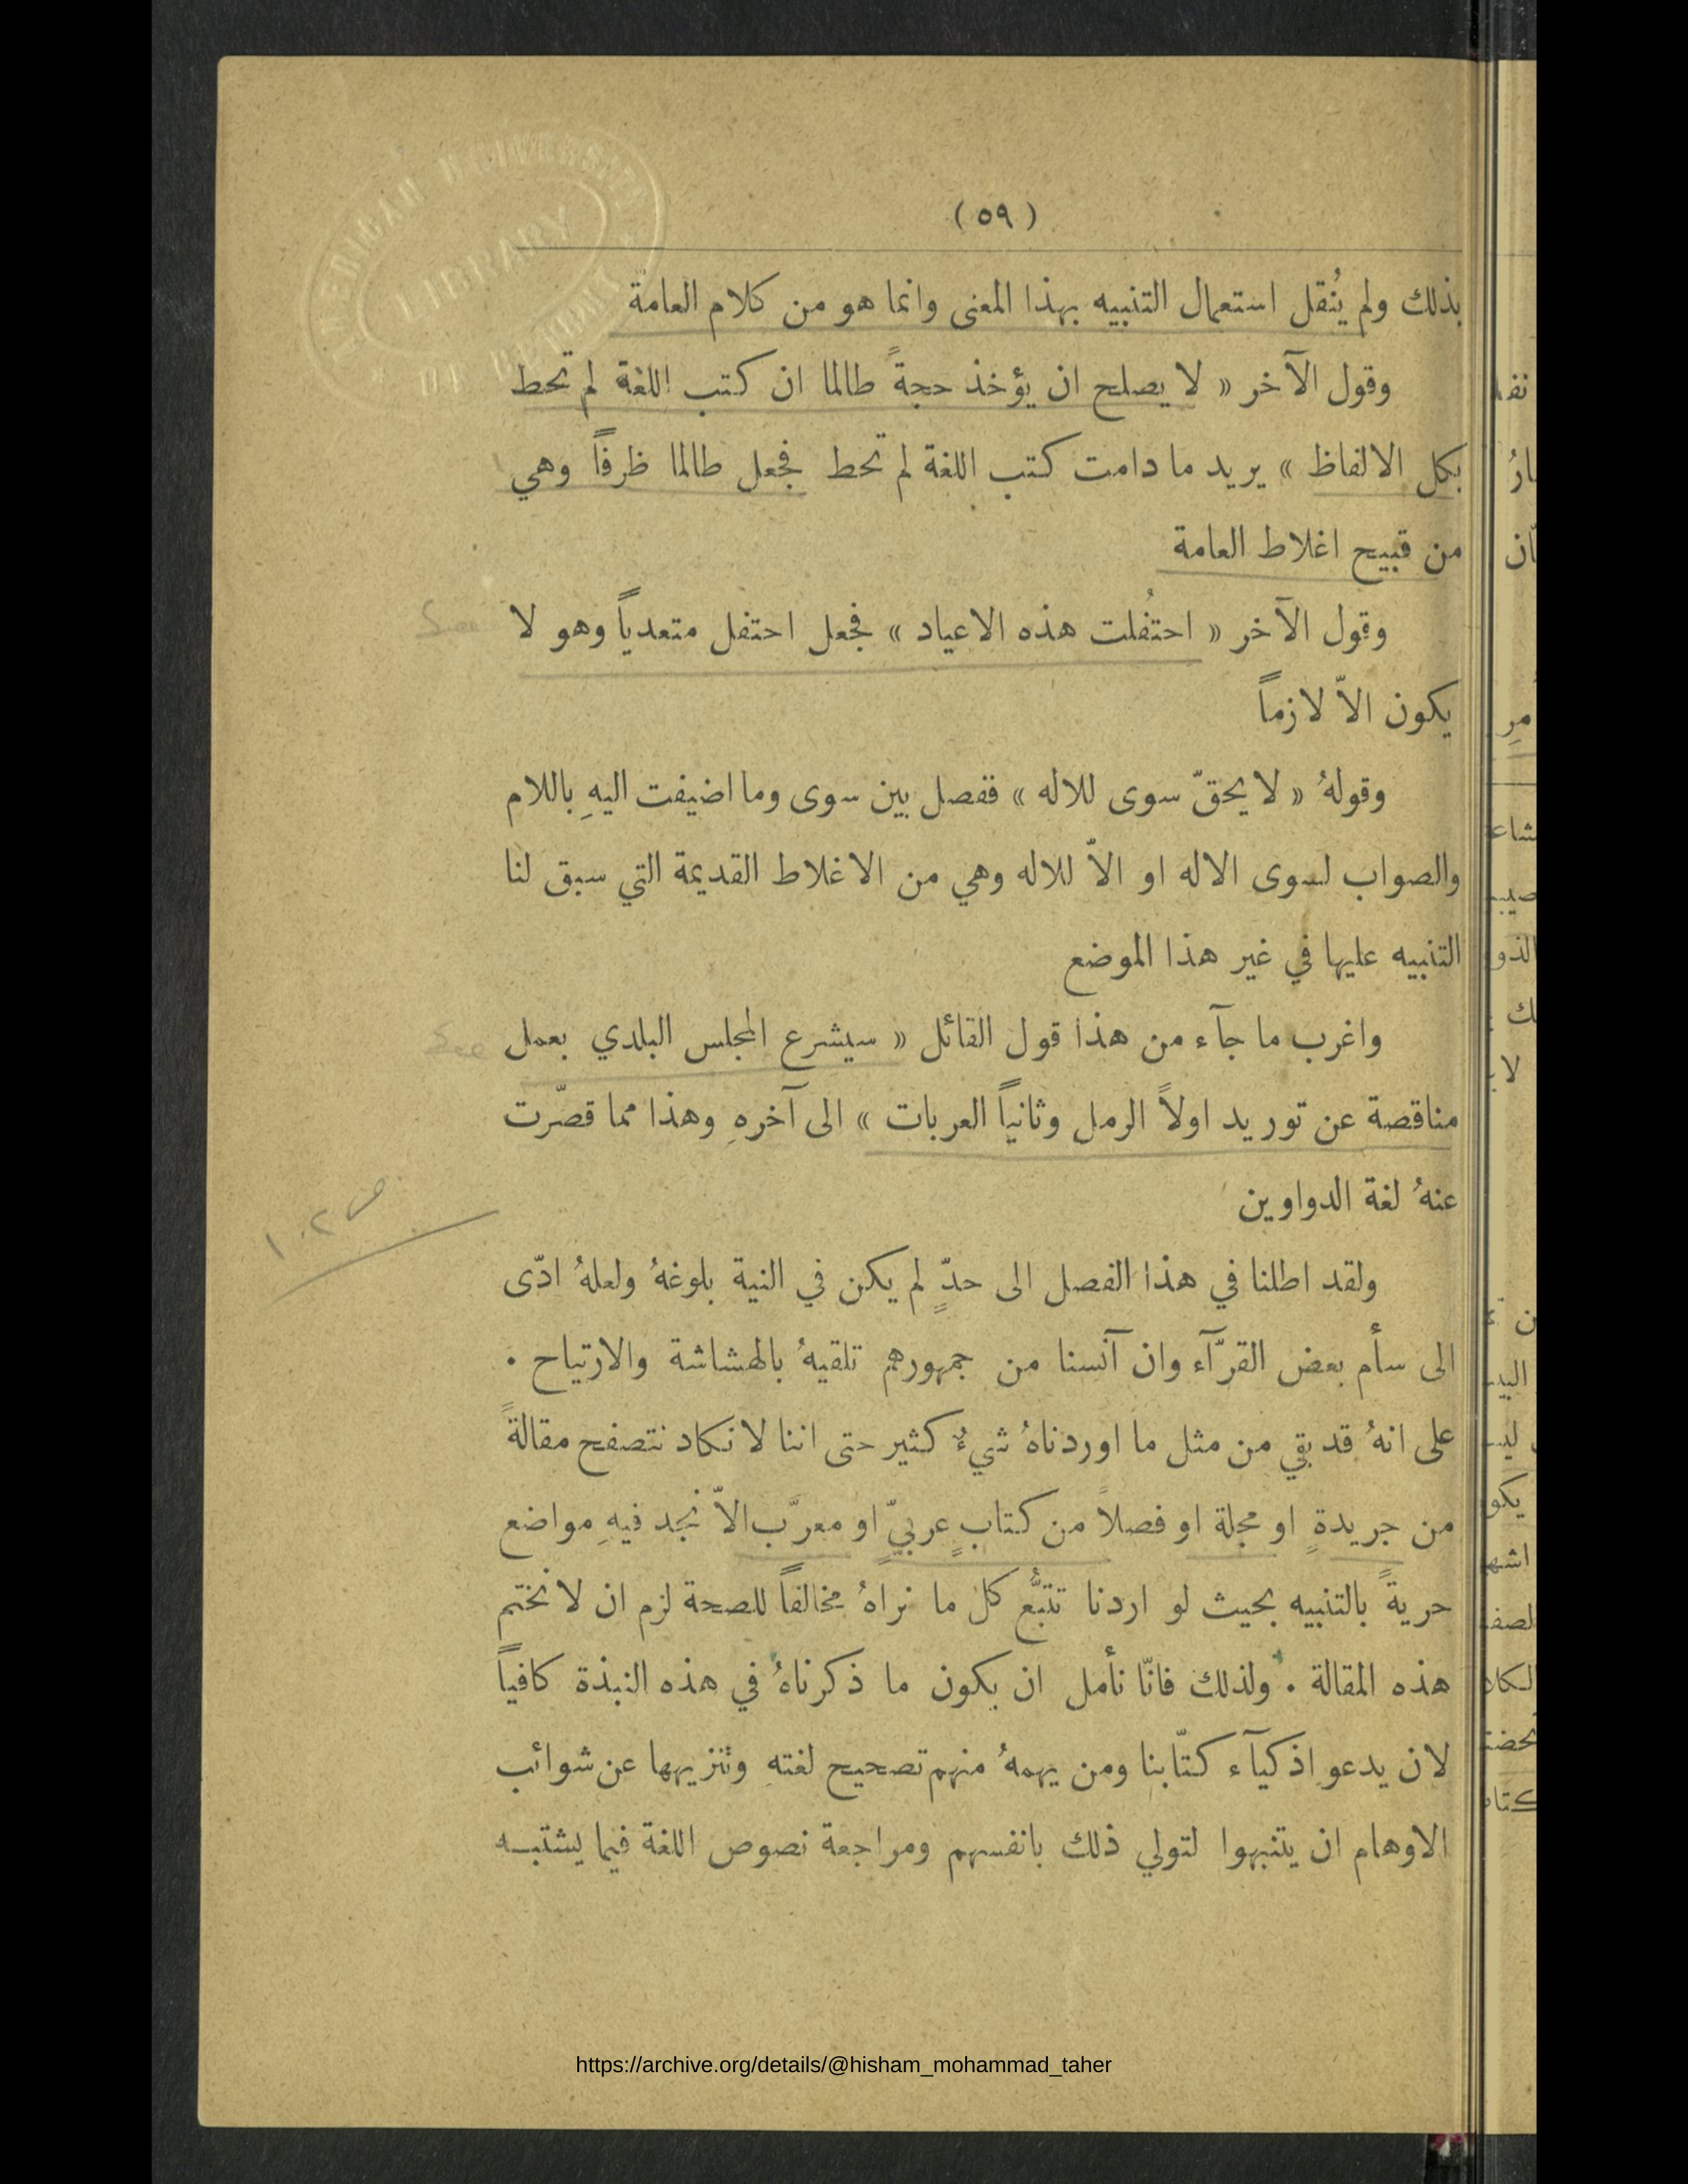 ( ٥٩ )
بذلك ولم يُنقل استعمال التنبيه بهذا المعنى وانما هو من كلام العامة
وقول الآخر « لا يصلح ان يؤخذ حجةً طالما ان كتب اللغة لم تحط
بكل الالفاظ » يريد ما دامت كتب اللغة لم تحط فجعل طالما ظرفاً وهي
من قبيح اغلاط العامة
وقول الآخر « احتُفلت هذه الاعياد » فجعل احتفل متعدياً وهو لا
See
يكون الاّ لازماً
وقولهُ « لا يحقّ سوى للاله » ففصل بين سوى وما اضيفت اليهِ باللام
والصواب لسوى الاله او الاّ للاله وهي من الاغلاط القديمة التي سبق لنا
التنبيه عليها في غير هذا الموضع
واغرب ما جآء من هذا قول القائل « سيشرع المجلس البلدي بعمل
See
مناقصة عن توريد اولاً الرمل وثانياً العربات » الى آخرهِ وهذا مما قصّرت
عنهُ لغة الدواوين
ص ١٠٢
ولقد اطلنا في هذا الفصل الى حدٍّ لم يكن في النية بلوغهُ ولعلهُ ادّى
الى سأم بعض القرّآء وان آنسنا من جمهورهم تلقيهُ بالهشاشة والارتياح .
على انهُ قد بقي من مثل ما اوردناهُ شيءٌ كثير حتى اننا لا نكاد نتصفح مقالةً
من جريدةٍ او مجلة او فصلاً من كتابٍ عربيّ او معرَّب الاّ نجد فيهِ مواضع
حريةً بالتنبيه بحيث لو اردنا تتبُّع كل ما نراهُ مخالفاً للصحة لزم ان لا نختم
هذه المقالة . ولذلك فانّا نأمل ان يكون ما ذكرناهُ في هذه النبذة كافياً
لان يدعو اذكيآء كتّابنا ومن يهمهُ منهم تصحيح لغتهِ وتنزيهها عن شوائب
الاوهام ان يتنبهوا لتولي ذلك بانفسهم ومراجعة نصوص اللغة فيما يشتبـه
https://archive.org/details/@hisham_mohammad_taher